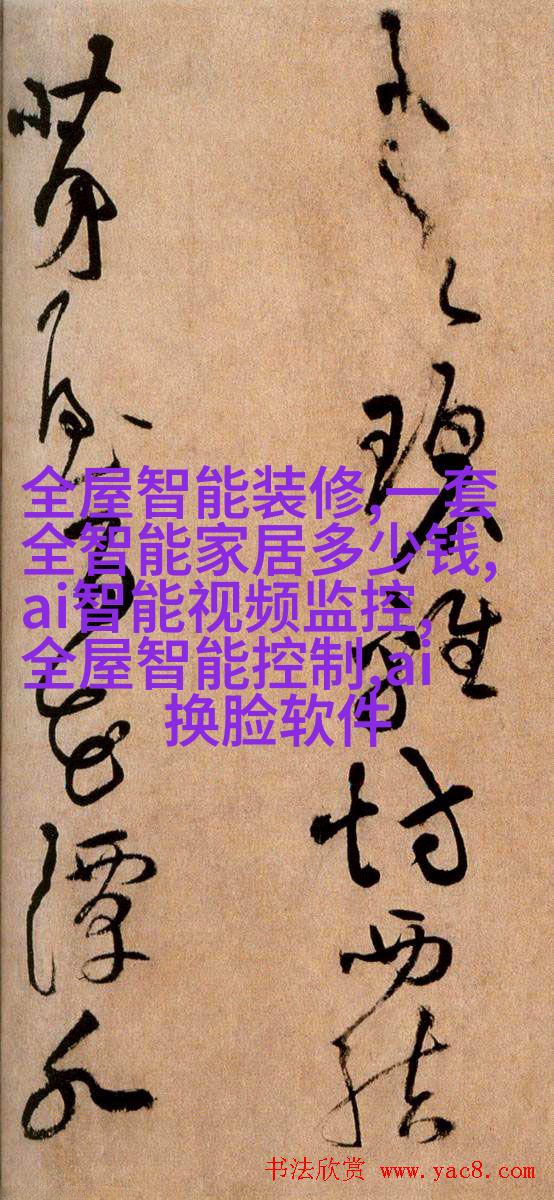 碧雞坊西結
茅屋百花潭水
全屋智能装修,一套
全智能家居多少钱,
ai智能视频监控,
全屋智能控制,ai
换脸软件
书法欣赏 www.yac8.com